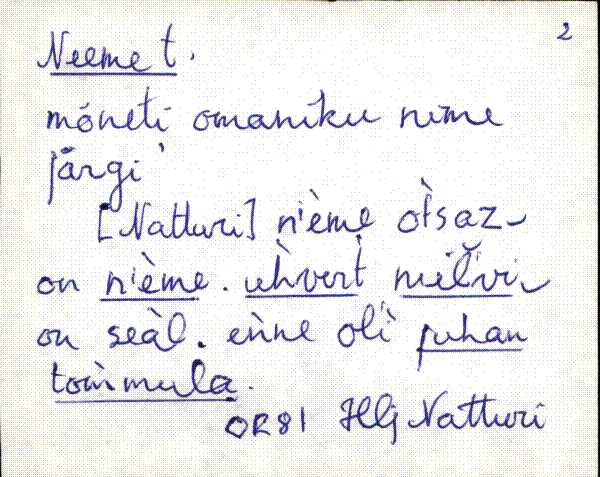 2
Neeme t.
mõneti omaniku nime
järgi
[Natturi] n'ème òtsaz
on n'ème. uhvert mĩlvi
on seàl. ènne olì juhan
toìmmula.
OR81 HLj Natturi